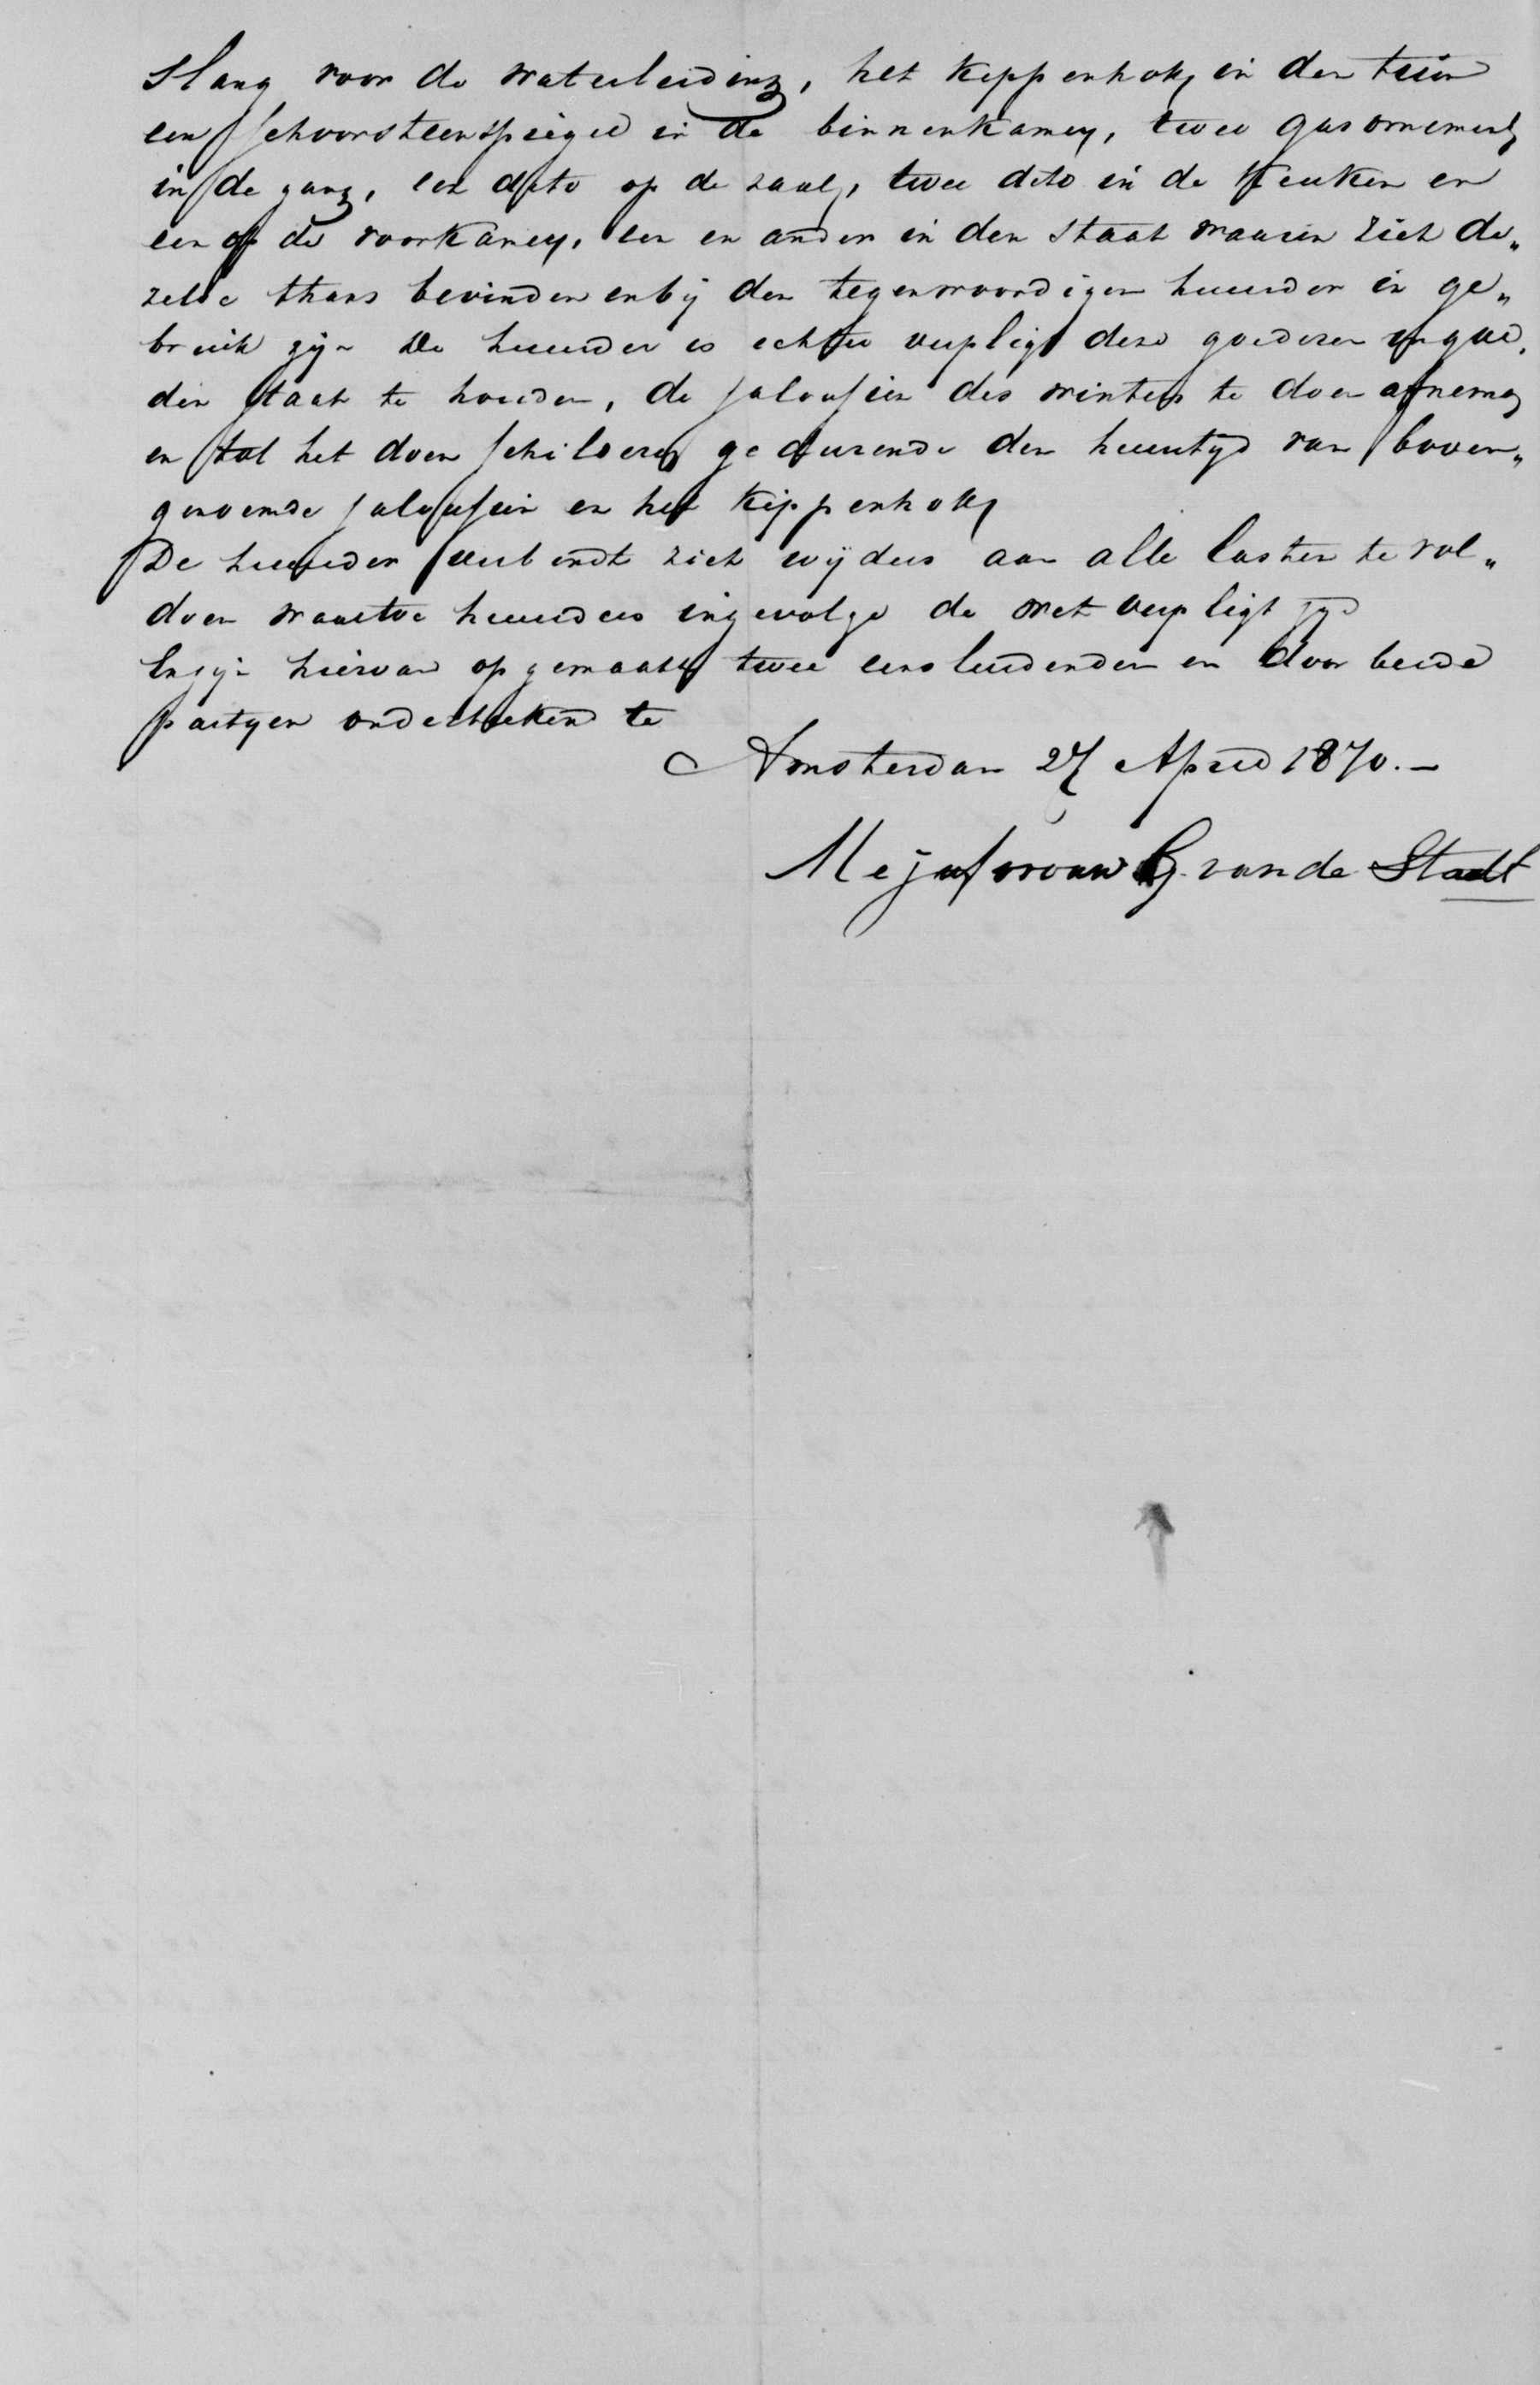 slang voor de waterleiding, het kippenhok, in den tuin
een schoorsteenspiegel in de binnenkamer, twee gasornement
in de gang, een dito op de zaal, twee dito in de keuken en
een op de voorkamer, een en ander in den staat waarin zich de„
zelve thans bevinden en bij den tegenwoordigen huurder in ge„
bruik zijn De huurder is echter verpligt deze goederen in goe„
den staat te houden, de jalousien des winters te doen afnemen
en tot het doen schilderen gedurende den huurtijd van boven„
genoemde jalousien en het kippenhok
De huurder verbindt zich wijders aan alle lasten te vol„
doen waartoe huurders ingevolge de wet verpligt zijn
En zijn hiervan opgemaakt twee eensluidenden en door beide
partijen onderteekend te
Amsterdam 27 April 1870.—
Mejufvrouw G. van de Stadt